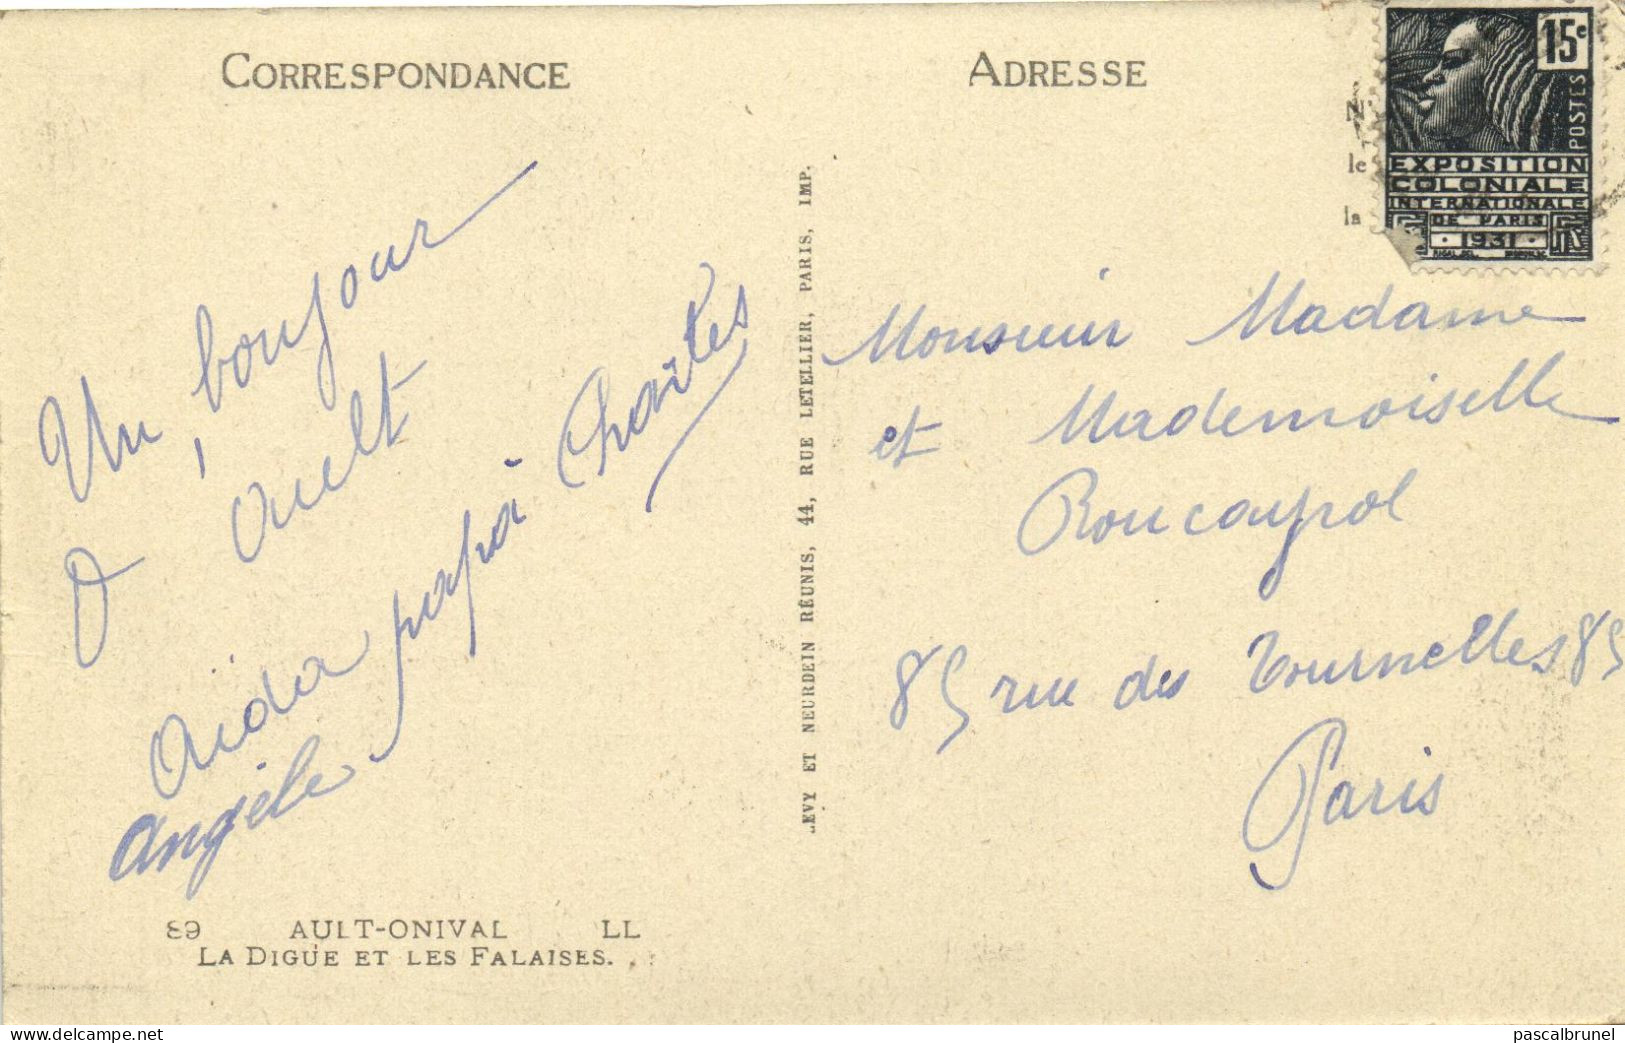 CORRESPONDANCE
Un bonjour
D' Auelt
Aïda papa Charles
Angèle
89 AULT-ONIVAL LL
LA DIGUE ET LES FALAISES.
LEVY ET NEURDEIN RÉUNIS, 44, RUE LETELLIER, PARIS, IMP.
ADRESSE
N
le
la
15c
POSTES
EXPOSITION
COLONIALE
INTERNATIONALE
DE PARIS
1931
Monsieur Madame
et Mademoiselle
Roucayrol
85 rue des Tournelles 85
Paris
www.delcampe.net
pascalbrunel